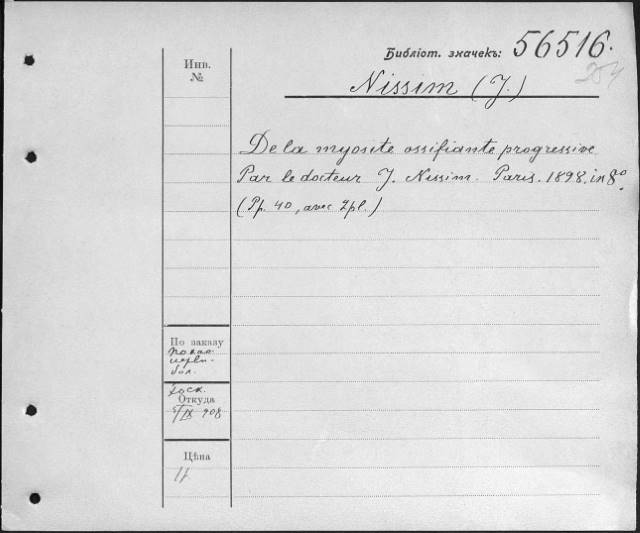 Библіот. значекъ: 56516.
Инв. №
Nissim (J.)
De la myosite ossifiante progressive
Par le docteur J. Nissim. Paris. 1898. in 8º.
(Pp. 40, avec 2 pl.)
По заказу
бол.
Откуда
IX 908
Цѣна